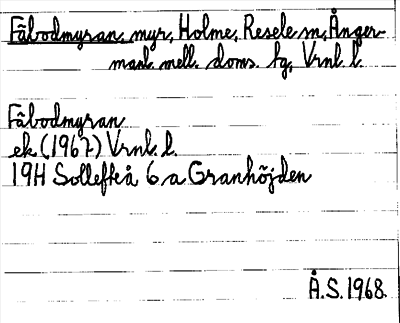 Fäbodmyran, myr, Holme, Resele sn, Ånger-
manl. mell. doms. fg, Vrnl. l.
Fäbodmyran
ek (1967) Vrnl. l.
19H Sollefteå 6 a Granhöjden
Å.S. 1968.